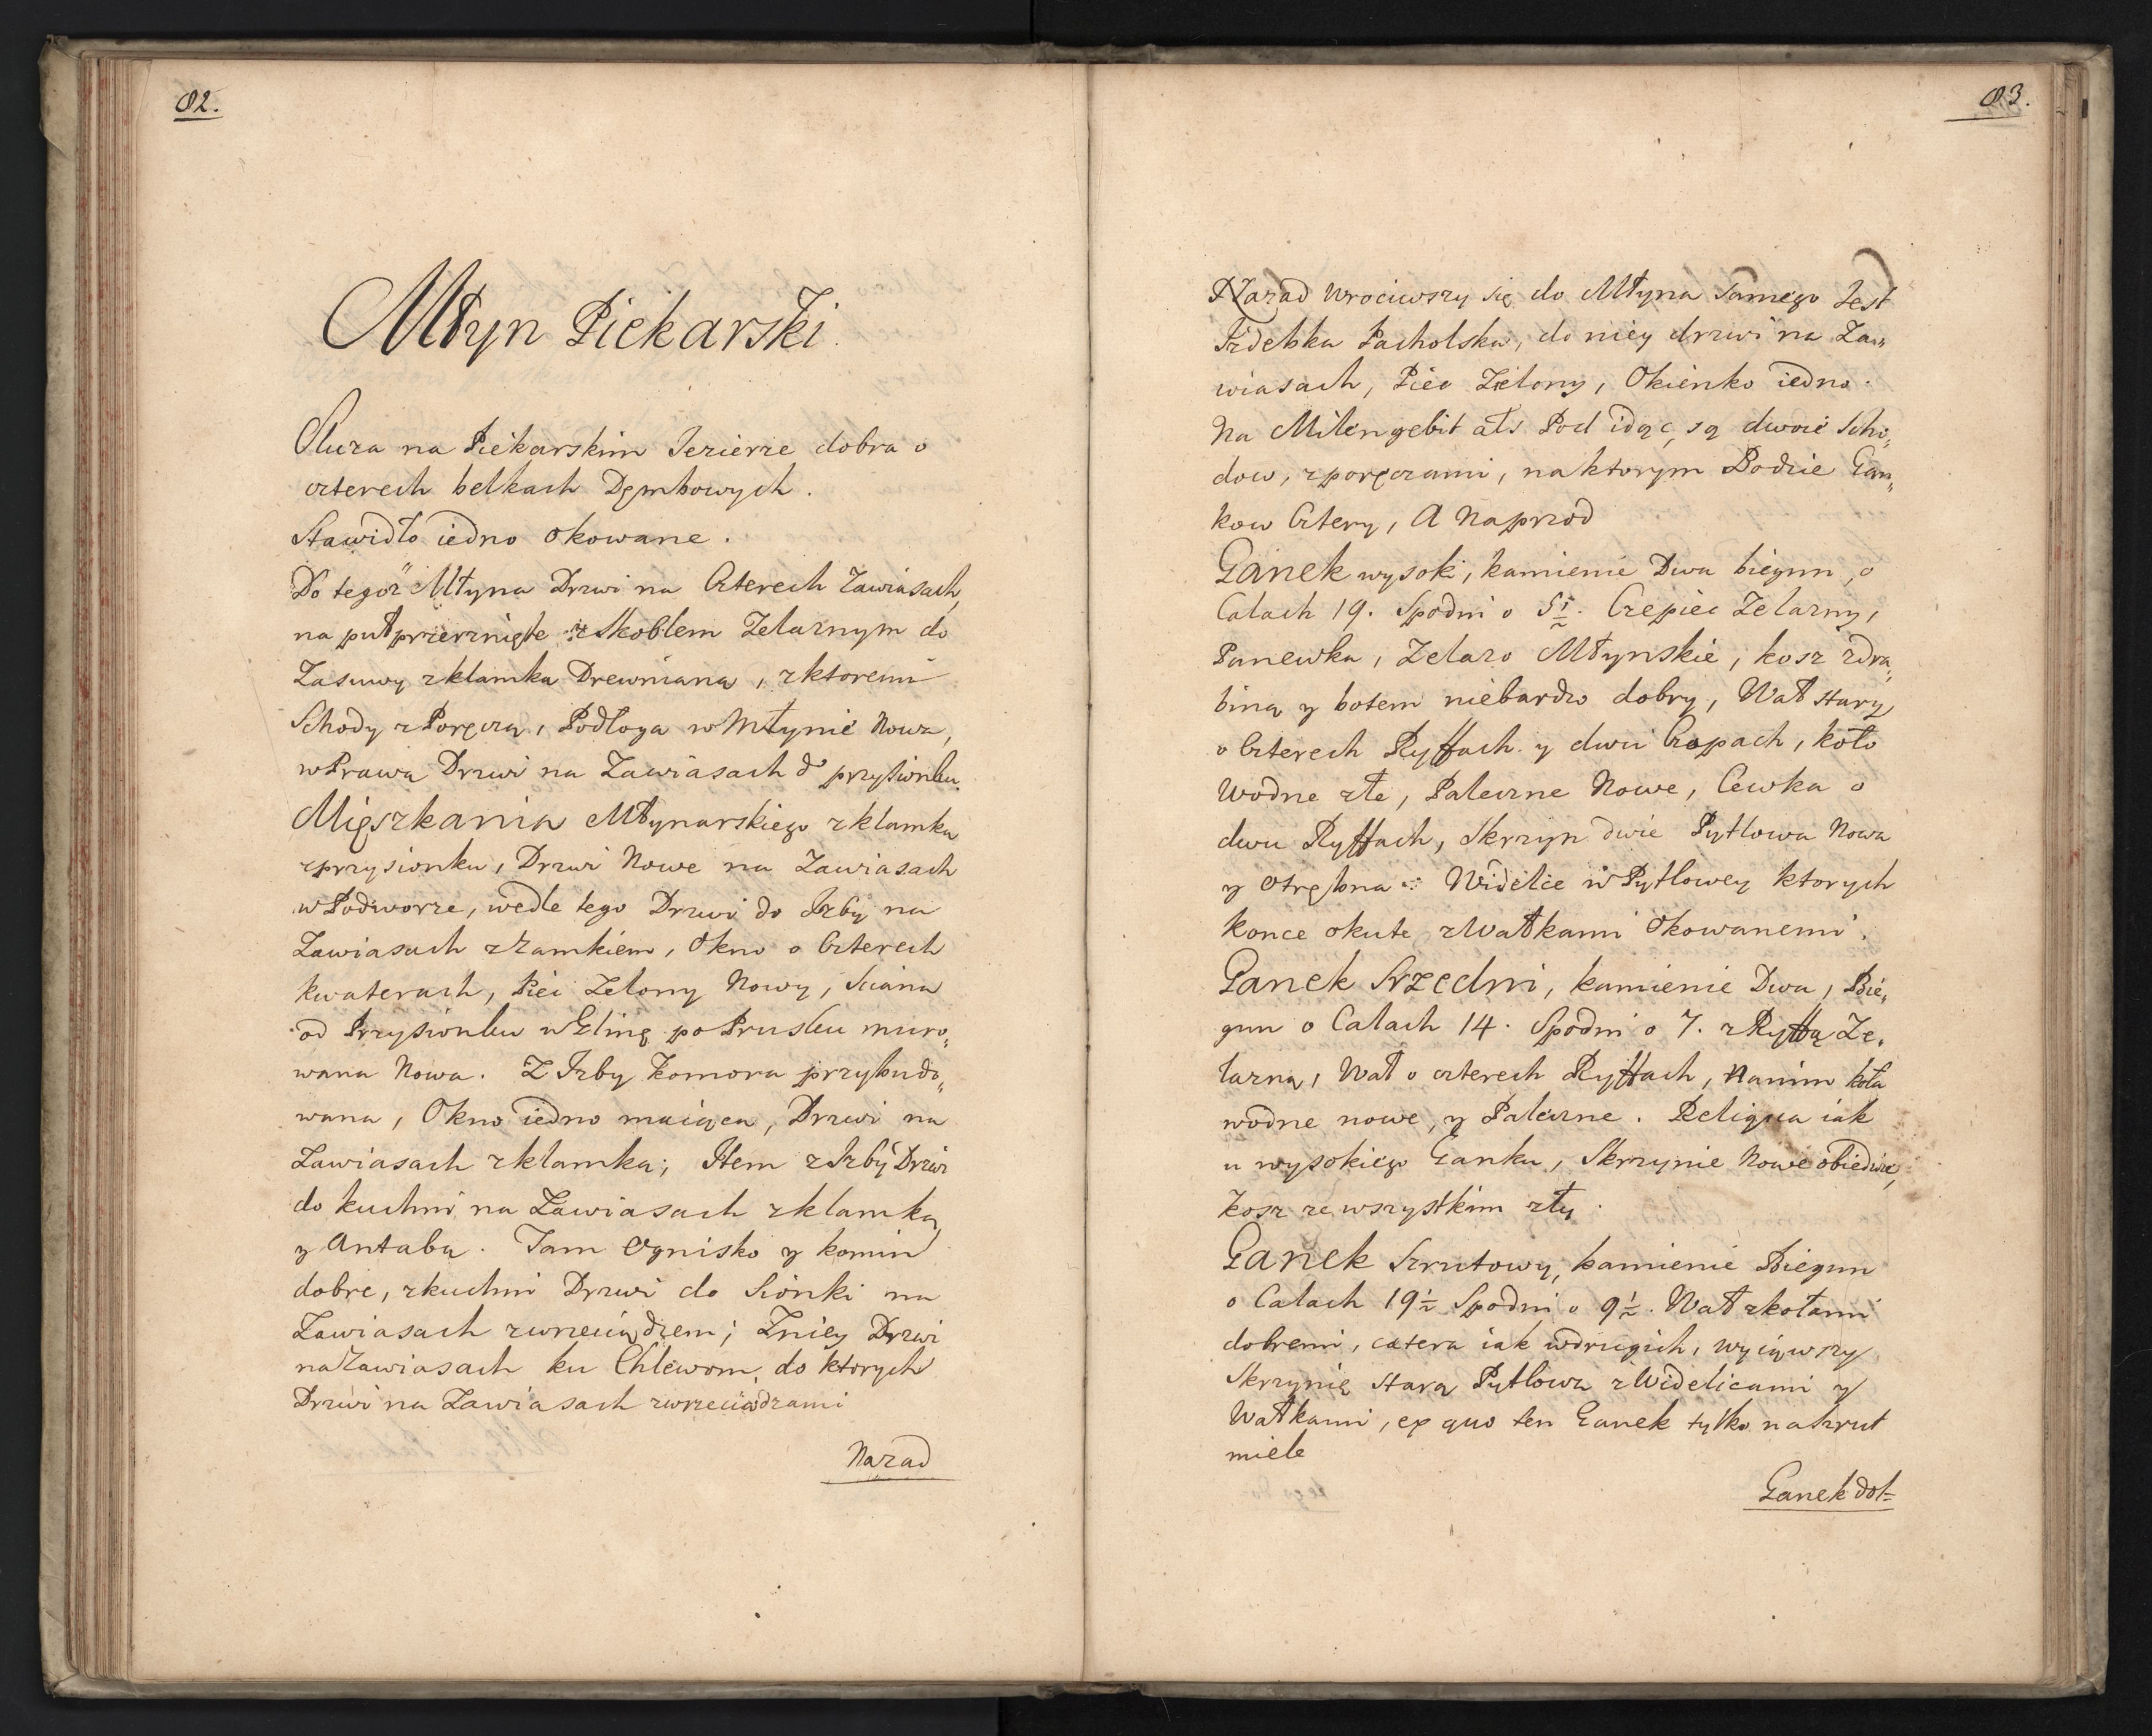 82.
Młyn Piekarski.
Sluza na Piekarskim Jezierze dobra o
czterech belkach Dęmbowych.
Stawidło iedno okowane.
Do tegoż Młyna Drzwi na Czterech Zawiasach,
na puł przerznięte z Skoblem Zelaznym do
Zasuwy z klamką Drewnianą, z ktoremi
Schody z Poręczą, Podłoga w Młynie Nowa,
w Prawą Drzwi na Zawiasach do przysionku
Mięszkania Młynarskiego z klamką
z przysionku, Drzwi Nowe na Zawiasach
w Podworze, wedle tego Drzwi do Izby na
Zawiasach z zamkiem, Okno o Czterech
kwaterach, Piec Zelony Nowy, Sciana
od Przysionku w Glinę po Prusku muro„
wana Nowa. Z Izby Komora przybudo„
wana, Okno iedno maiąca, Drzwi na
Zawiasach z klamką; Item z Izby Drzwi
do kuchni na Zawiasach z klamką
y Antabą. Tam Ognisko y komin
dobre, z kuchni Drzwi do Sionki na
Zawiasach z wrzeciądzem; Zniey Drzwi
na Zawiasach ku Chlewom, do ktorych
Drzwi na Zawiasach z wrzeciądzami
Nazad
83.
Nazad wrociwszy się do Młyna Samego Jest
Izdebka Pacholska, do niey drzwi na Za„
wiasach, Piec Zielony, Okienko iedno.
Na Milengebit als Pod idąc, są dwoie Scho„
dow, z poręczami, na ktorym Podzie Gan„
kow Cztery, A Naprzod
Ganek wysoki, kamienie Dwa biegun, o
Calach 19. Spodni o 5½. Czepiec Zelazny,
Panewka, Zelazo Młynskie, kosz z dra„
biną y botem niebardzo dobry, Wał stary
o Czterech Ryffach y dwu Czopach, koło
Wodne złe, Paleczne Nowe, Cewka o
dwu Ryffach, Skrzyn dwie Pytlowa Nowa
y otrębna Widelce w Pytlowey ktorych
konce okute z Wałkami Okowanemi.
Ganek Srzedni, kamienie Dwa, Bie„
gun o Calach 14. Spodni o 7. z Ryffą Ze„
lazną, Wał o czterech Ryffach, Nanim koła
wodne nowe, y Paleczne. Reliqua iak
u wysokiego Ganku, Skrzynie Nowe obiedwie,
kosz ze wszystkim zły.
Ganek Szrutowy, kamienie Biegun
o Calach 19½ Spodni o 9½. Wał z kołami
dobremi, cætera iak w drugich, wyiąwszy
Skrzynię starą Pytlową z Widelicami y
Wałkami, ex quo ten Ganek tylko na szrut
miele
Ganek dol=